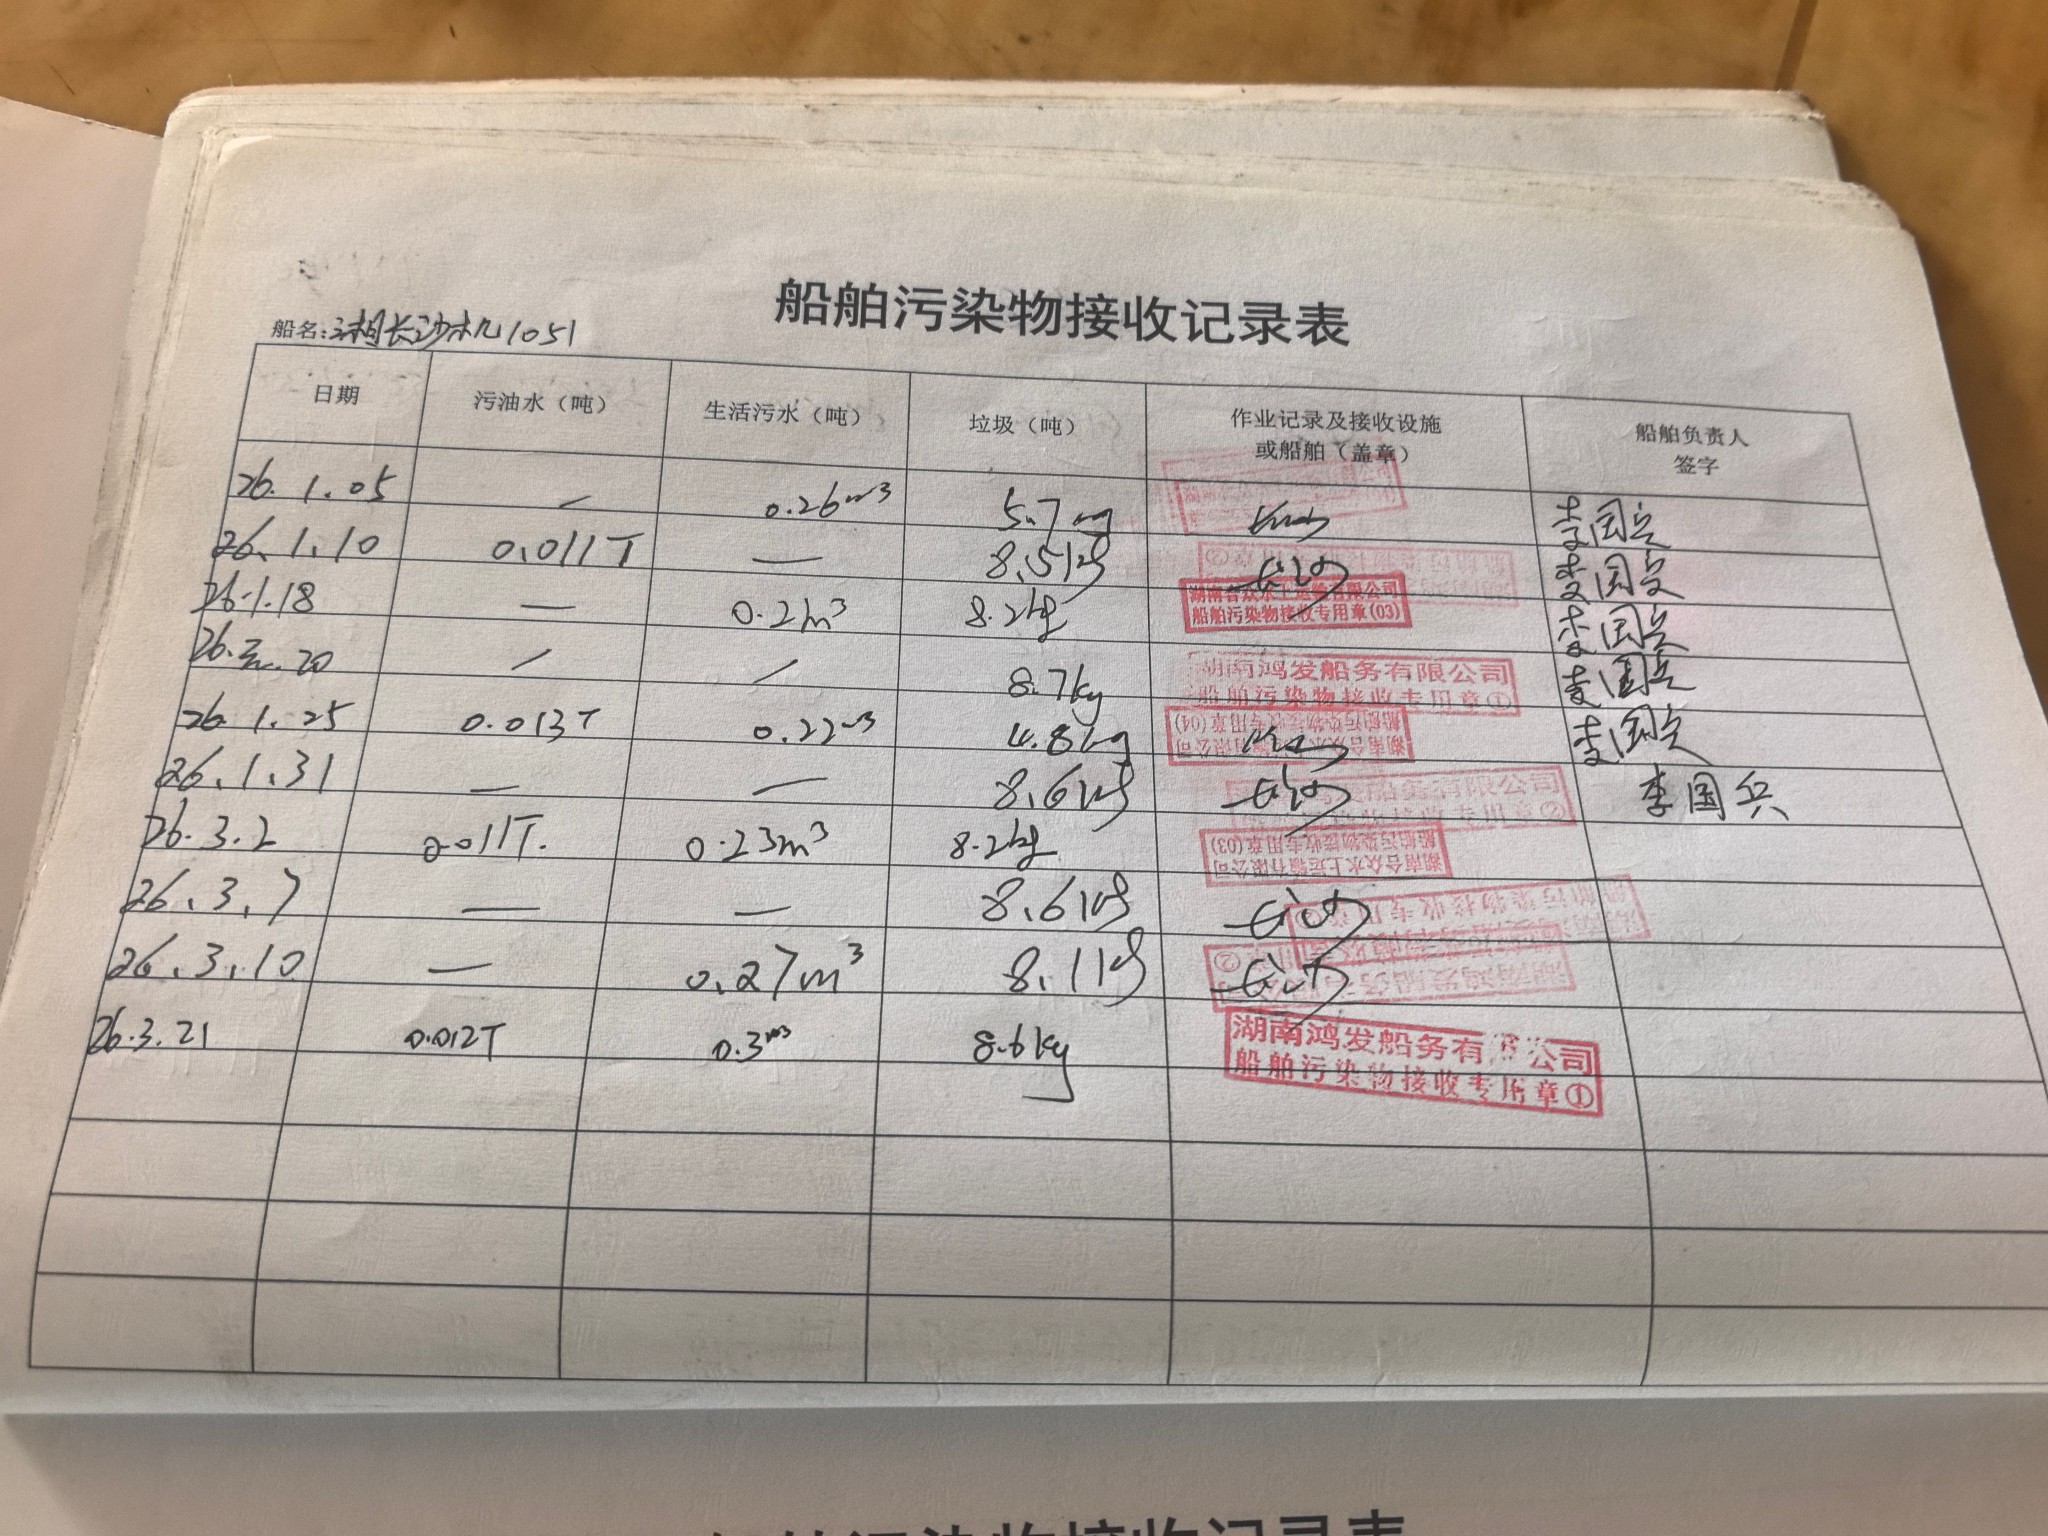 船舶污染物接收记录表
船名:湘长沙机1051
日期 污油水（吨） 生活污水（吨） 垃圾（吨） 作业记录及接收设施 或船舶（盖章） 船舶负责人 签字
26.1.05 / 0.26m³ 5.7kg 李国兵
26.1.10 0.011T — 8.5kg 李国兵
26.1.18 — 0.2m³ 8.2kg 李国兵
湖南合众水上运输有限公司
船舶污染物接收专用章(03)
26.元.20 / / 8.7kg 李国兵
湖南鸿发船务有限公司
船舶污染物接收专用章①
26.1.25 0.013T 0.22m³ 4.8kg 李国兵
湖南合众水上运输有限公司
船舶污染物接收专用章(04)
26.1.31 — — 8.6kg 李国兵
26.3.2 0.011T. 0.23m³ 8.2kg
湖南合众水上运输有限公司
船舶污染物接收专用章(03)
26.3.7 — — 8.6kg
26.3.10 — 0.27m³ 8.1kg
26.3.21 0.012T 0.3m³ 8.6kg
湖南鸿发船务有限公司
船舶污染物接收专用章①
船舶污染物接收记录表